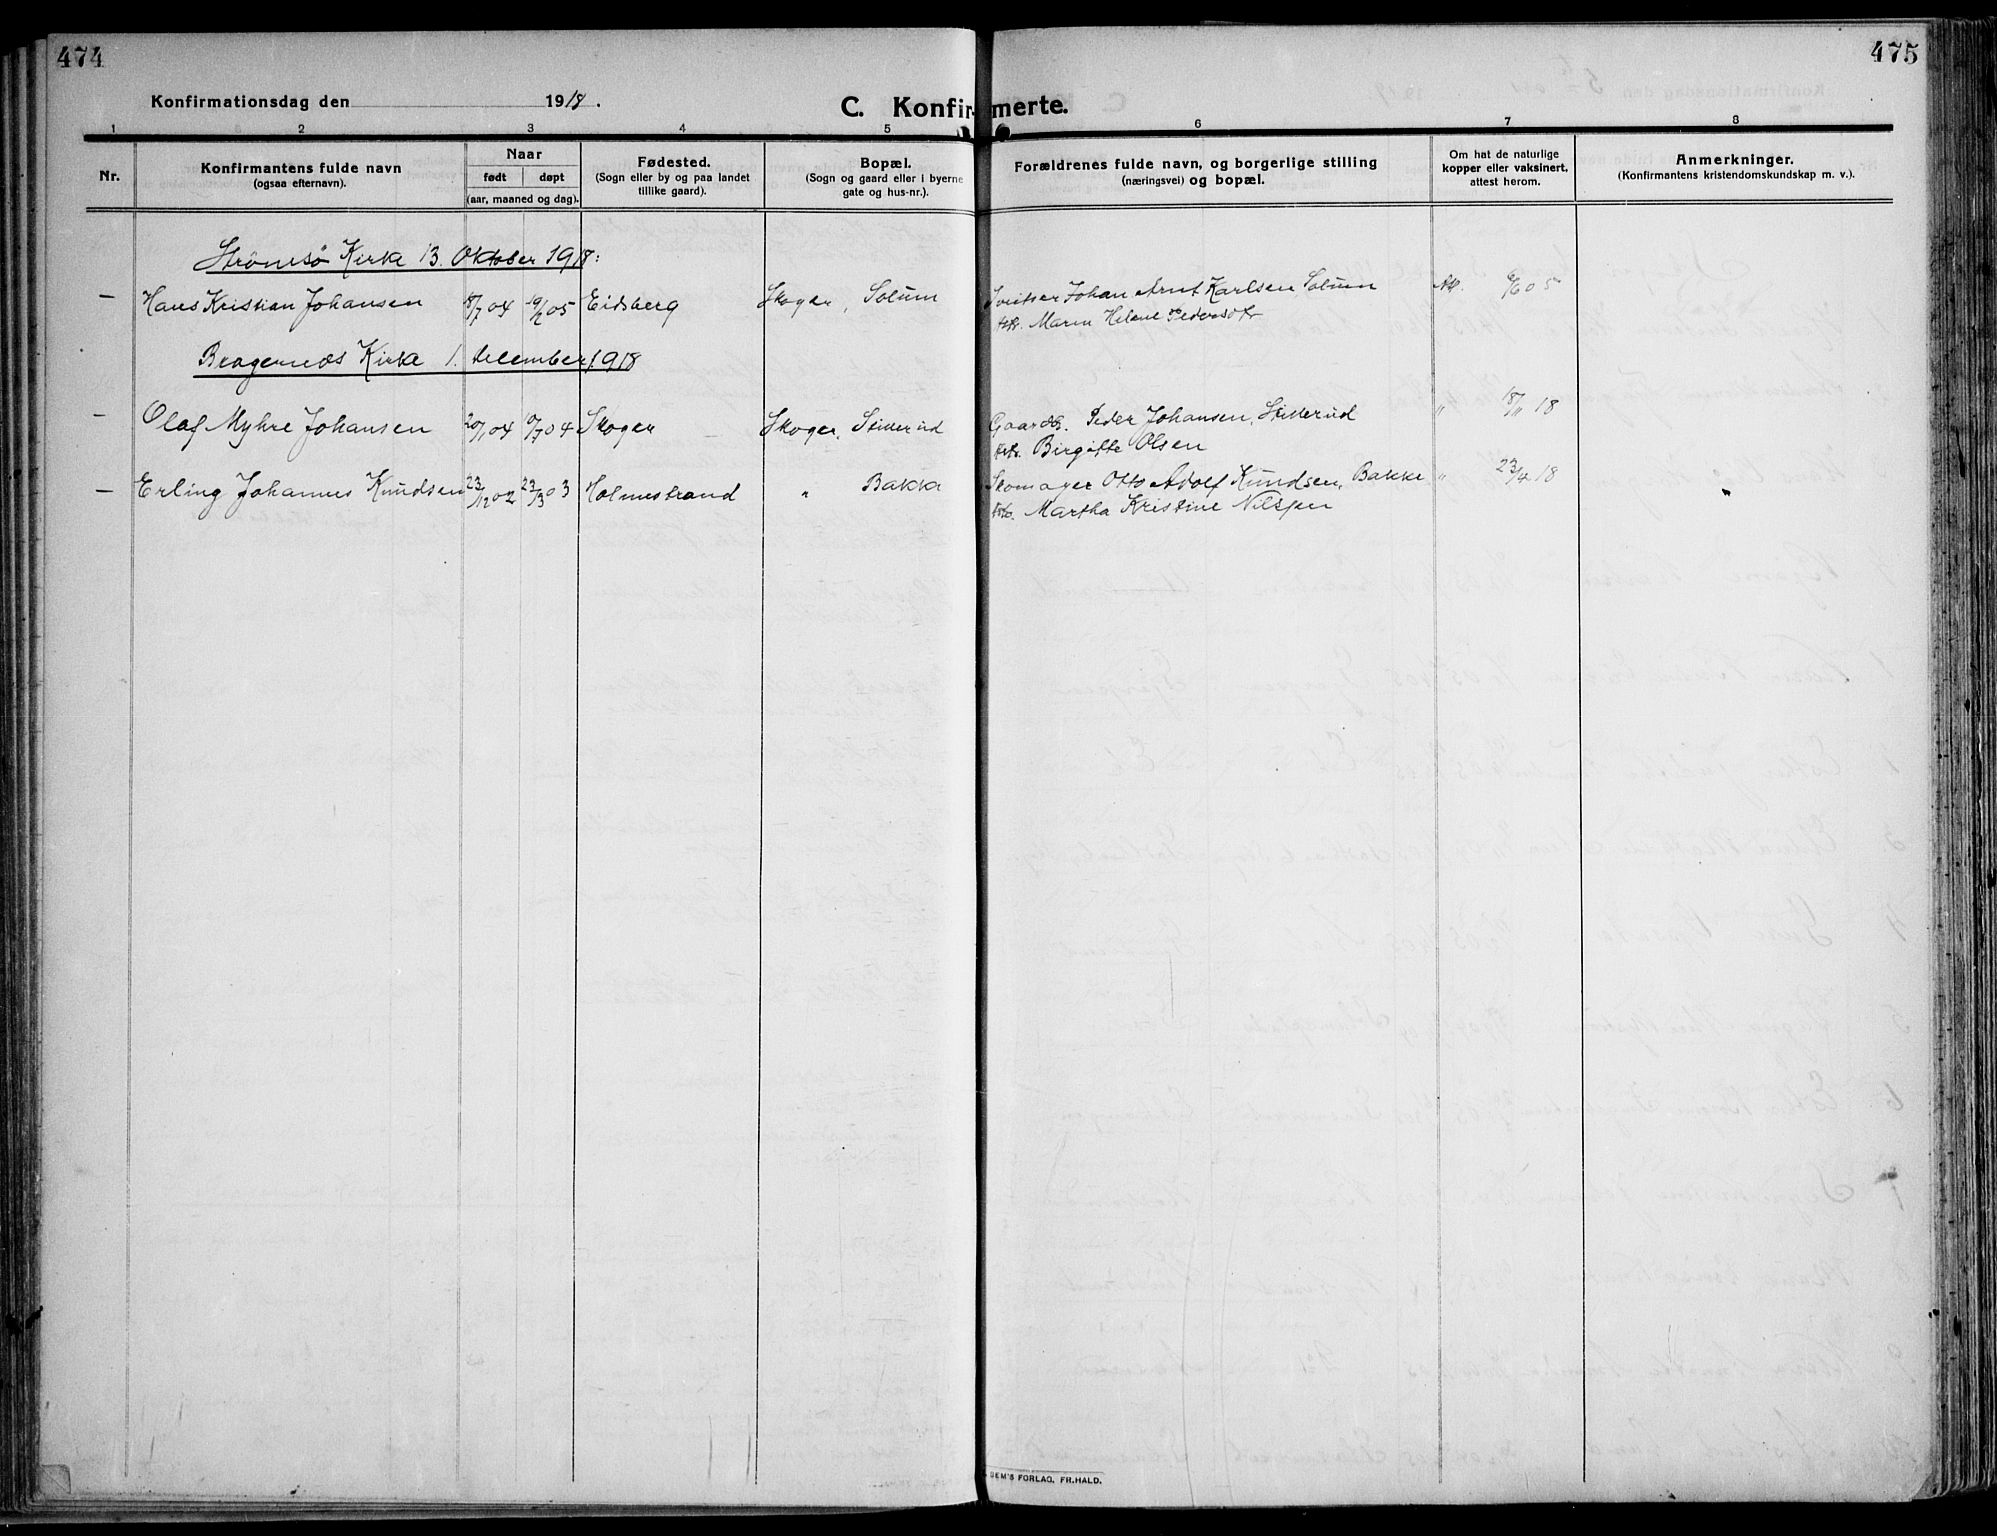 474
475
Konfirmationsdag den 1918.
C. Konfirmerte.
1 2 3 4 5 6 7 8
Nr.
Konfirmantens fulde navn
(ogsaa efternavn).
Naar
født døpt
(aar, maaned og dag).
Fødested.
(Sogn eller by og paa landet
tillike gaard).
Bopæl.
(Sogn og gaard eller i byerne
gate og hus-nr.).
Forældrenes fulde navn, og borgerlige stilling
(næringsvei) og bopæl.
Om hat de naturlige
kopper eller vaksinert,
attest herom.
Anmerkninger.
(Konfirmantens kristendomskundskap m. v.).
Strömsö Kirke 13. Oktober 1918:
– Hans Kristian Johansen 18/7 04 19/2 05 Eidsberg Skoger, Solum Sveitser Johan Arnt Karlsen, Solum
Maren Helene Pedersdtr
Bragernæs Kirke 1. December 1918
– Olaf Myhre Johansen 20/1 04 10/7 04 Skoger Skoger, Stikkerud Gaardbr. Peder Johansen, Stikkerud „ 18/11 18
Birgitte Olsen
– Erling Johannes Knudsen 23/12 02 22/3 03 Holmestrand „ Bakke Skomager Otto Adolf Knudsen, Bakke „ 23/4 18
Martha Kristine Nilsen
SEM'S FORLAG, FR.HALD.